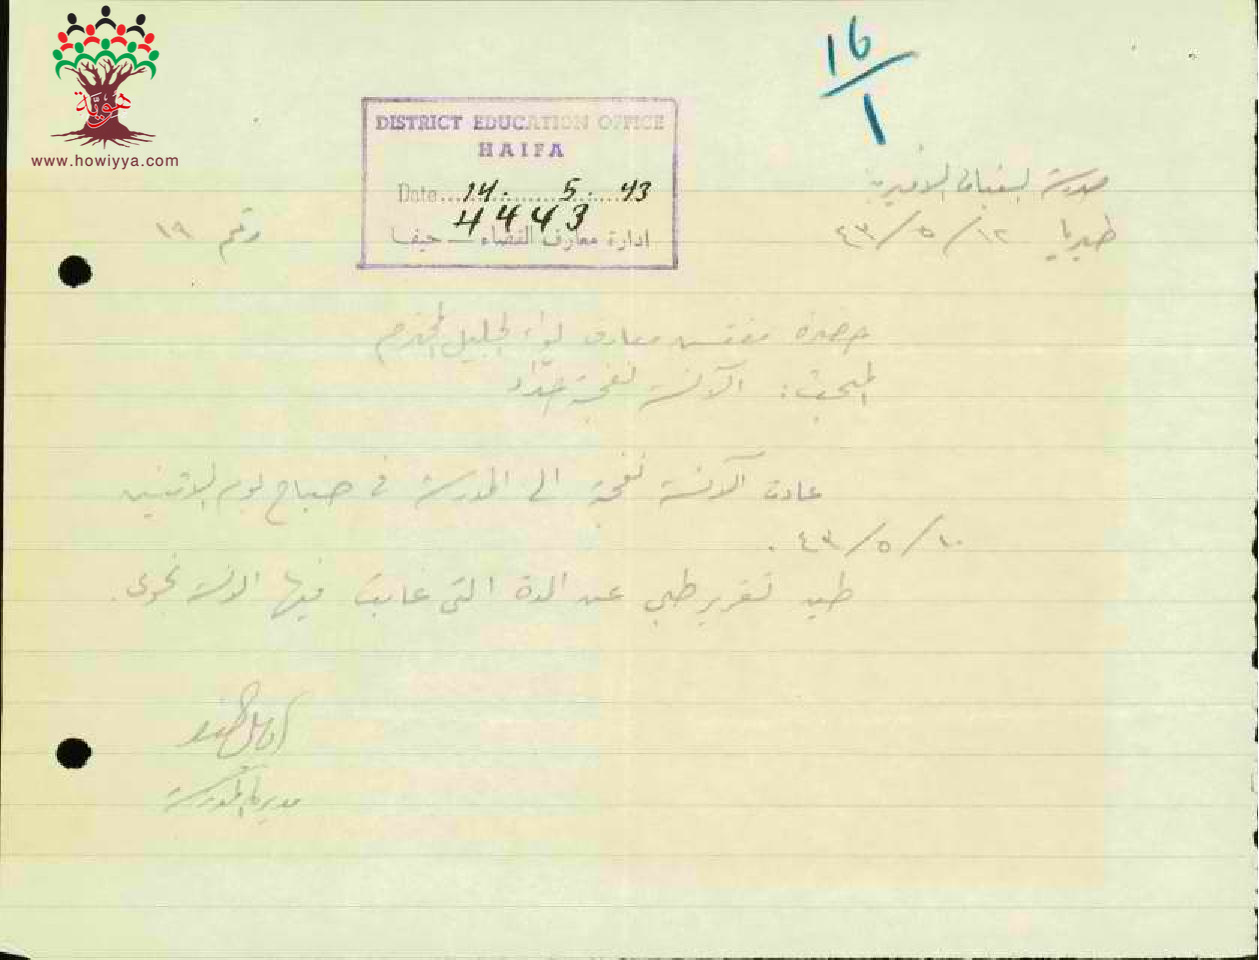 هوية
www.howiyya.com
16/1
DISTRICT EDUCATION OFFICE
HAIFA
Date 14. 5. 43
4443
ادارة معارف القضاء — حيفا
مدرسة البنات الاميرية
طبريا ١٢/٥/٤٣
رقم ١٩
حضرة مفتش معارف لواء الجليل المحترم
المبحث: الآنسة حداد
عادت الآنسة الى المدرسة في صباح يوم الاثنين
١٠/٥/٤٣.
طيه تقرير طبي عن المدة التي غابت فيها الآنسة
مديرة المدرسة